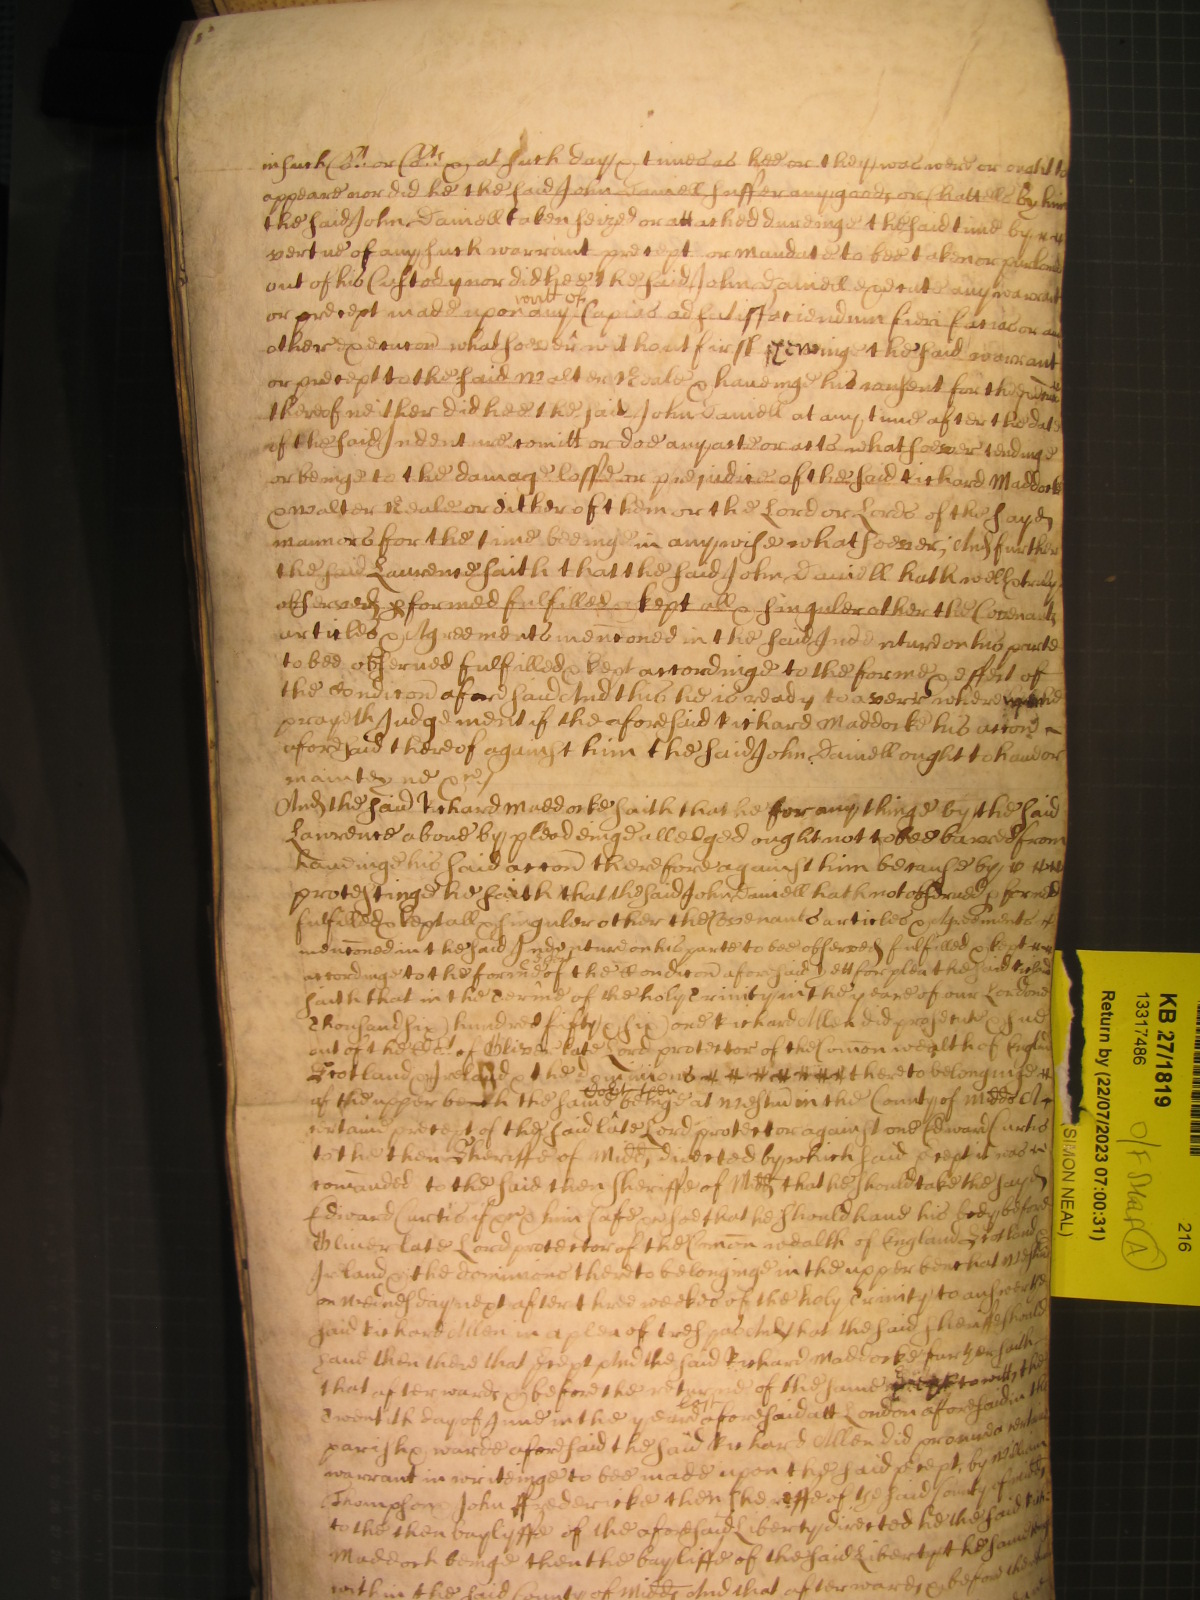 in such Co:rt or Co:rts & at such days & times as hee or they was were or ought to
appeare nor did he the said John Daniell suffer any goods or Chattells by him
the said John Daniell taken seized or attached dureinge the said time by
vertue of any such warrant precept or Mandate to bee taken or
out of his Custody nor did hee the said John Daniell execute any warrant
or precept made upon any writt of Capias ad satisfaciendum fieri facias or any
other execucon whatsoever without first shewinge the said warrant
or precept to the said Walter Neale & haveinge his consent for the
thereof neither did hee the said John Daniell at any time after the date
of the said Indenture comitt or doe any acte or acts whatsoever tendinge
or beinge to the damage losse or prejudice of the said Richard Maddocke
& Walter Neale or either of them or the Lord or Lords of the sayd
mannors for the time beeinge in any wise whatsoever; And further
the said Laurence saith that the said John Daniell hath well & truly
observed pformed fulfilled & kept all & singuler other the Covenants
articles & Agreements menconed in the said Indenture on his parte
to bee observed fulfilled & kept accordinge to the forme & effect of
the Condicon aforesaid And this he is ready to averr wherefore he
prayeth Judgement if the aforesaid Richard Maddocke his accon
aforesaid thereof against him the said John Daniell ought to have or
mainteyne &c
And the said Richard Maddocke saith that he for any thinge by the said
Lawrence above by pleadeinge alledged ought not to bee barred from
haveinge his said accon therefore against him because by
protestinge he saith that the said John Daniell hath not observed pformed
fulfilled & kept all & singuler other the Covenants articles & Agreements
menconed in the said Indenture on his parte to bee observed fulfilled & kept
accordinge to the forme of the Condicon aforesaid yett for plea the said Richard
saith that in the Terme of the holy Trinity in the yeare of our Lord one
Thousand six hundred fifty & six one Richard Allen did prosecute & sue
out of the Co:rt of Oliver late Lord protector of the Comon wealth of England
Scotland & Ireland & the dominions thereto belonginge
of the upper bench the same Court then beinge at Westm in the County of Midds A
certaine precept of the said late Lord protector against one Edward Curtis
to the then Sheriffe of Midds directed by which said precept it was
comanded to the said then Sheriffe of Midds that he should take the sayd
Edward Curtis if &c & him safe &c soe that he should have his body before
Oliver late Lord protector of the Comon wealth of England Scotland &
Ireland & the dominions thereto belonginge in the upper bench at Westm
on Wednesday next after three weekes of the holy Trinity to answer the
said Richard Allen in a plea of trespas And that the said Sheriffe should
have then there that precept And the said Richard Maddocke further saith
that afterwards & before the returne of the same to witt the
Twentith day of June in the yeare last aforesaid att London aforesaid in the
parish & warde aforesaid the said Richard Allen did procure a certaine
warrant in writeinge to bee made upon the said precept by William
Thompson & John ffredericke then Sheriffe of the said County of Midds
to the then bayliffe of the aforesaid Liberty directed he the said Richard
Maddock beinge then the bayliffe of the said Libertye the same
within the said County of Midds And that afterwards & before the
KB 27/1819
13317486
216
Return by (22/07/2023 07:00:31)
(SIMON NEAL)